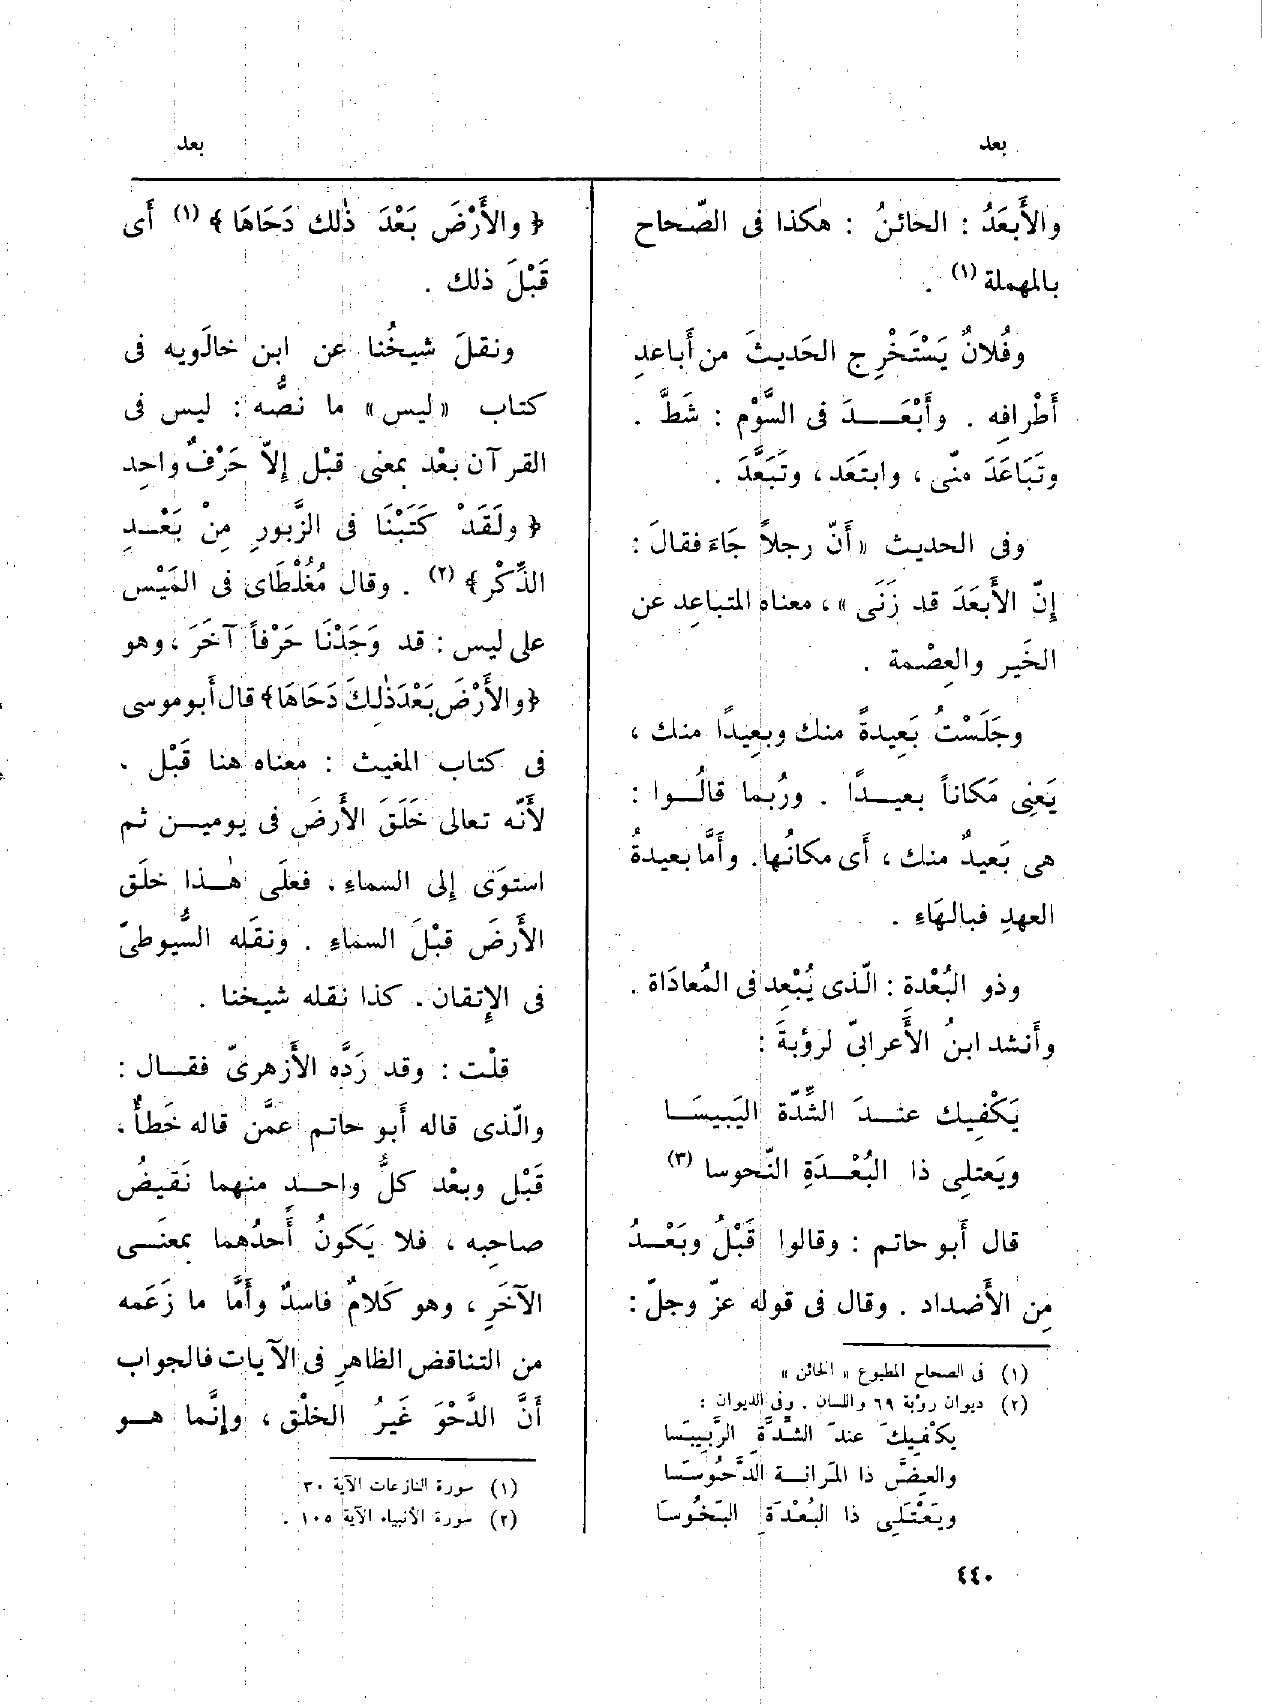 بعد
بعد
والأَبعَدُ : الحائنُ : هٰكذا فى الصّحاح
بالمهملة (١) .
وفُلانٌ يَسْتَخْرِج الحَديثَ من أَباعدِ
أَطْرافِه . وأَبْعَــدَ فى السَّوْم : شَطَّ .
وتَبَاعَدَ منّى ، وابتَعَد ، وتَبَعَّدَ .
وفى الحديث « أَنّ رجلاً جَاءَ فقالَ :
إِنّ الأَبعَدَ قد زَنَى » ، معناه المتباعِد عن
الخَير والعِصْمة .
وجَلَسْتُ بَعِيدةً منك وبعِيدًا منك ،
يَعنِى مَكاناً بعيــدًا . ورُبما قالُــوا :
هى بَعيدٌ منك ، أَى مكانُها. وأَمَّا بعيدةُ
العهدِ فبالهَاءِ .
وذو البُعْدةِ : الّذى يُبْعِد فى المُعادَاة .
وأَنشد ابنُ الأَعرابىّ لرؤبةَ :
يَكْفِيك عنــدَ الشِّدّة اليَبيسَــا
ويَعتلِى ذا البُعْــدَةِ النّحوسا (٣)
قال أَبو حاتم : وقالوا قَبْلُ وبَعْــدُ
مِن الأَضداد . وقال فى قوله عزّ وجلّ :
(١) فى الصحاح المطبوع « الخائن »
(٢) ديوان رؤبة ٦٩ واللسان . وفى الديوان :
يكْفيكَ عندَ الشِّدَّةِ الرَّبِيبَسَا
والعِضَّ ذا المَرانــة الدَّحُوسَسا
ويَعْتَلِى ذا البُعْدَةِ البَخُوسَا
﴿ والأَرْضَ بَعْدَ ذٰلك دَحَاهَا ﴾ (١) أَى
قَبْلَ ذلك .
ونقلَ شيخُنا عن ابن خالَويه فى
كتاب « ليس » ما نصُّه : ليس فى
القرآن بعْد بمعنى قبْل إِلاّ حَرْفٌ واحِد
﴿ ولَقَدْ كَتَبْنَا فى الزَّبورِ مِنْ بَعْــدِ
الذِّكْر ﴾ (٢) . وقال مُغُلْطَاى فى المَيْس
على ليس : قد وَجَدْنَا حَرْفاً آخَرَ ، وهو
﴿والأَرْضَ بَعْدَ ذٰلِكَ دَحَاهَا﴾ قال أَبو موسى
فى كتاب المغيث : معناه هنا قَبْل .
لأَنّه تعالى خَلَقَ الأَرضَ فى يوميــن ثم
استوَى إِلى السماءِ ، فعلَى هٰــذا خلَق
الأَرضَ قبْلَ السماءِ . ونقَله السُّيوطىّ
فى الإِتقان . كذا نقله شيخنا .
قلْت : وقد رَدَّه الأَزهرىّ فقــال :
والّذى قاله أَبو حاتم عمَّن قاله خَطأٌ ،
قَبْل وبعْد كلُّ واحــدٍ منهما نَقيضُ
صاحِبه ، فلا يَكونُ أَحدُهما بمعنَــى
الآخَرِ ، وهو كَلامٌ فاسدٌ وأَمَّا ما زَعَمه
من التناقض الظاهرِ فى الآيات فالجواب
أَنَّ الدَّحْوَ غَيرُ الخلْق ، وإِنَّما هــو
(١) سورة النازعات الآية ٣٠
(٢) سورة الأنبياء الآية ١٠٥ .
٤٤٠